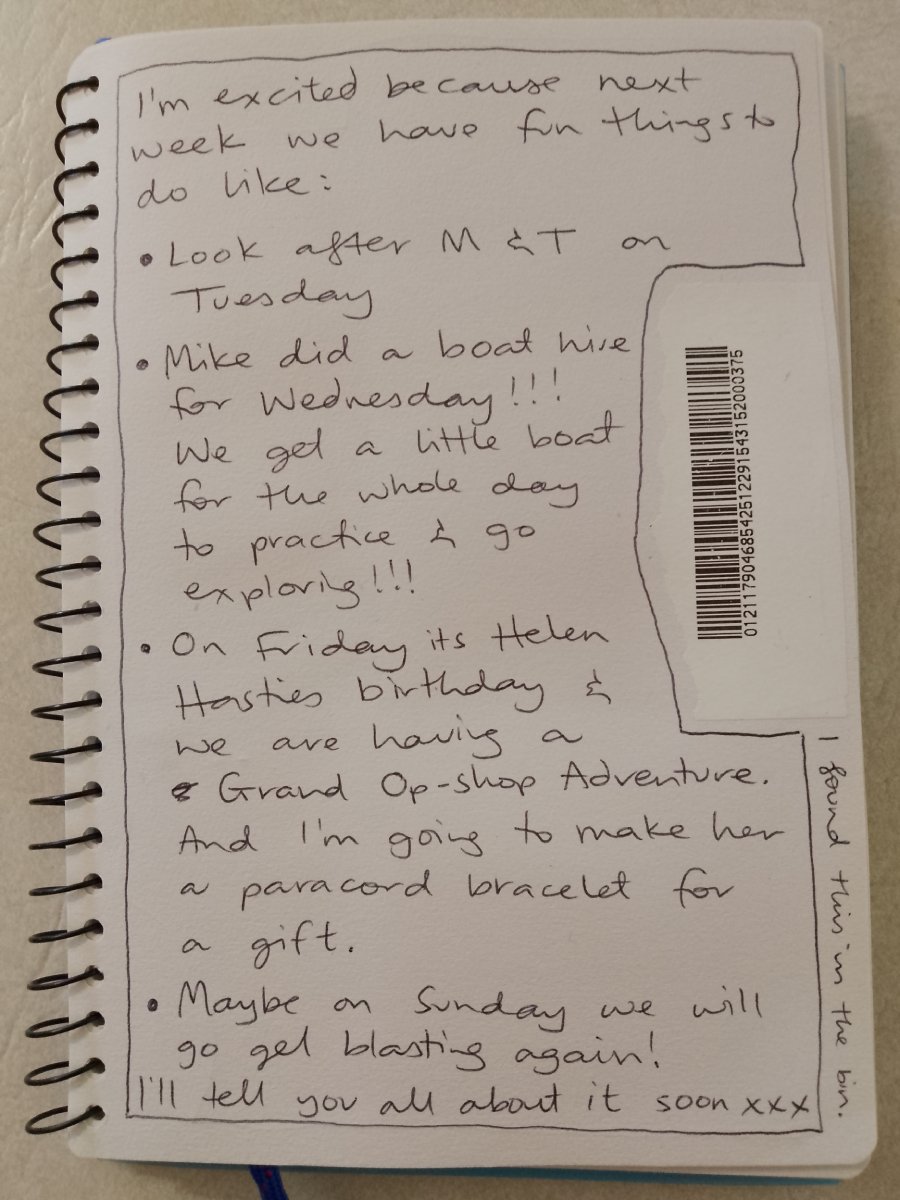 I'm excited because next
week we have fun things to
do like:
• Look after M & T on
Tuesday
• Mike did a boat hire
for Wednesday!!!
We get a little boat
for the whole day
to practice & go
exploring!!!
• On Friday its Helen
Hasties birthday &
we are having a
Grand Op-shop Adventure.
And I'm going to make her
a paracord bracelet for
a gift.
• Maybe on Sunday we will
go gel blasting again!
I'll tell you all about it soon xxx
01211790468542512291543152000375
I found this in the bin.